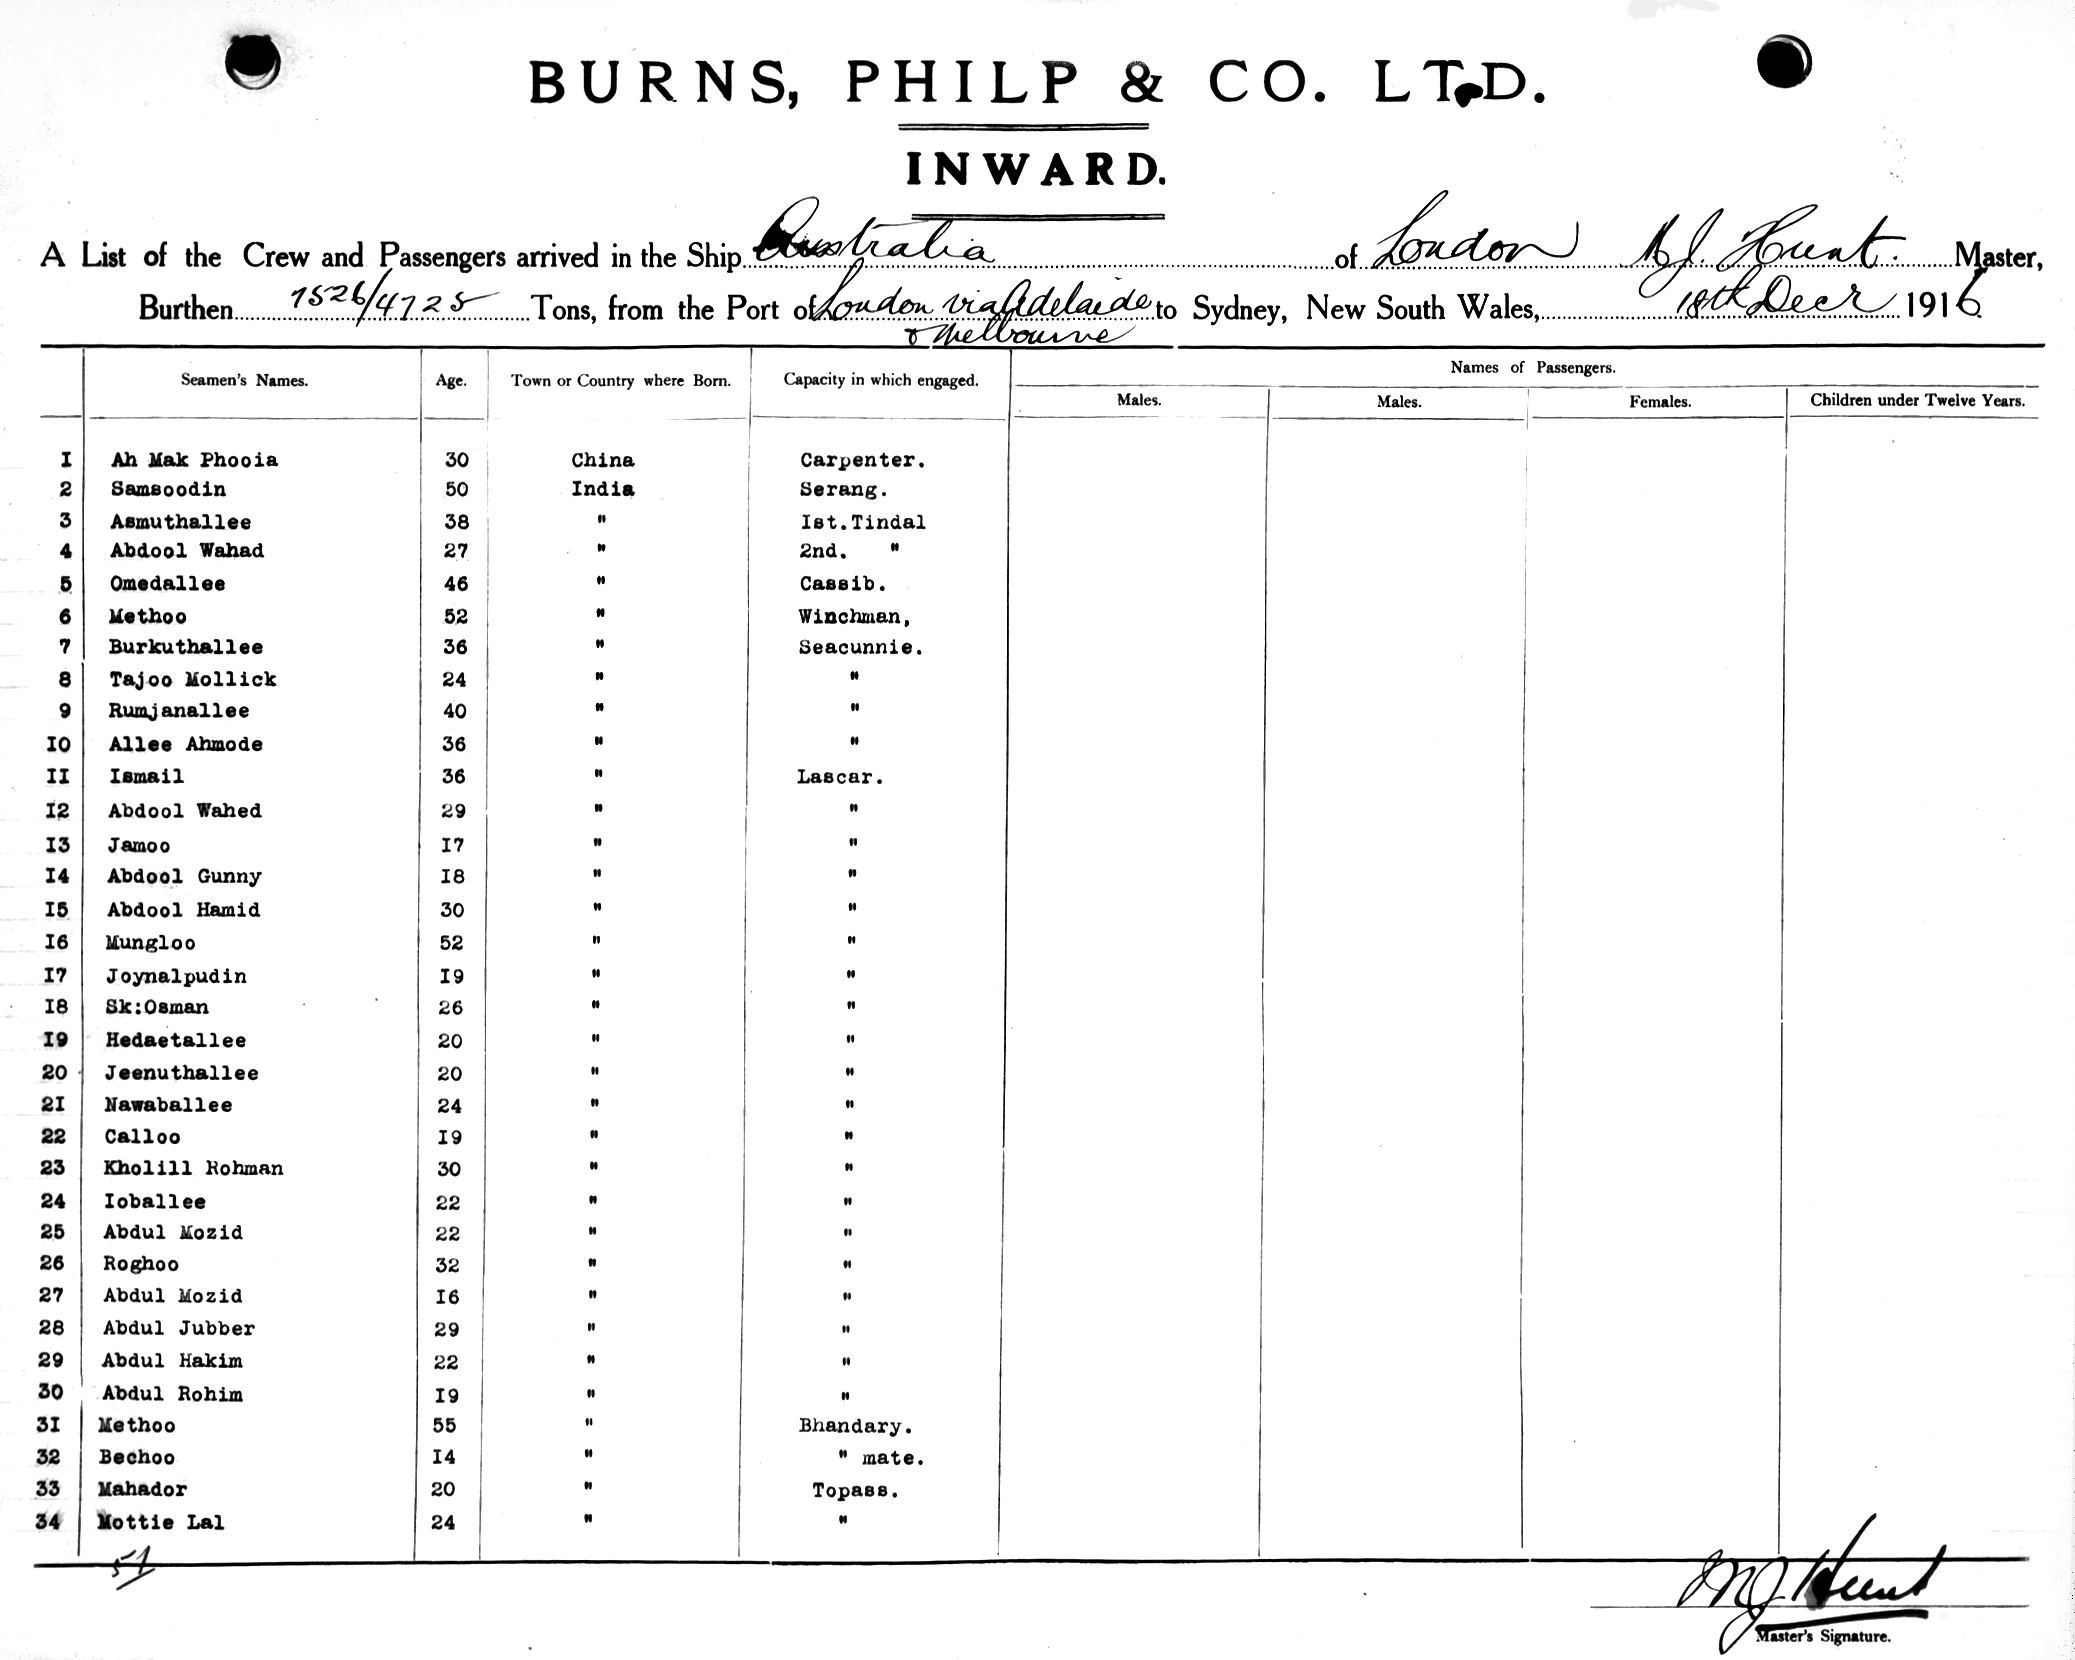 BURNS, PHILP & CO. LTD.
INWARD.
A List of the Crew and Passengers arrived in the Ship Australia of London M J. Hunt. Master,
Burthen 7526/4725 Tons, from the Port of London via Adelaide to Sydney, New South Wales, 18th Decr 1916
& Melbourne
Names of Passengers.
Seamen's Names. Age. Town or Country where Born. Capacity in which engaged. Males. Males. Females. Children under Twelve Years.
I Ah Mak Phooia 30 China Carpenter.
2 Samsoodin 50 India Serang.
3 Asmuthallee 38 " Ist.Tindal
4 Abdool Wahad 27 " 2nd. "
5 Omedallee 46 " Cassib.
6 Methoo 52 " Winchman,
7 Burkuthallee 36 " Seacunnie.
8 Tajoo Mollick 24 " "
9 Rumjanallee 40 " "
IO Allee Ahmode 36 " "
II Ismail 36 " Lascar.
I2 Abdool Wahed 29 " "
I3 Jamoo I7 " "
I4 Abdool Gunny I8 " "
I5 Abdool Hamid 30 " "
I6 Mungloo 52 " "
I7 Joynalpudin I9 " "
I8 Sk:Osman 26 " "
I9 Hedaetallee 20 " "
20 Jeenuthallee 20 " "
2I Nawaballee 24 " "
22 Calloo I9 " "
23 Kholill Rohman 30 " "
24 Ioballee 22 " "
25 Abdul Mozid 22 " "
26 Roghoo 32 " "
27 Abdul Mozid I6 " "
28 Abdul Jubber 29 " "
29 Abdul Hakim 22 " "
30 Abdul Rohim I9 " "
3I Methoo 55 " Bhandary.
32 Bechoo I4 " " mate.
33 Mahador 20 " Topass.
34 Mottie Lal 24 " "
51
M J Hunt
Master's Signature.